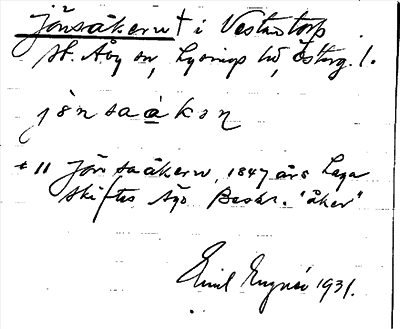 Jönsåkern † i Västratorp
St. Åby sn, Lysings hd, Österg. l.
jönsaåkan
† 11 Jönsaåkern, 1847 års Laga
skiftes Ägo Beskr. "åker"
Emil 1931.